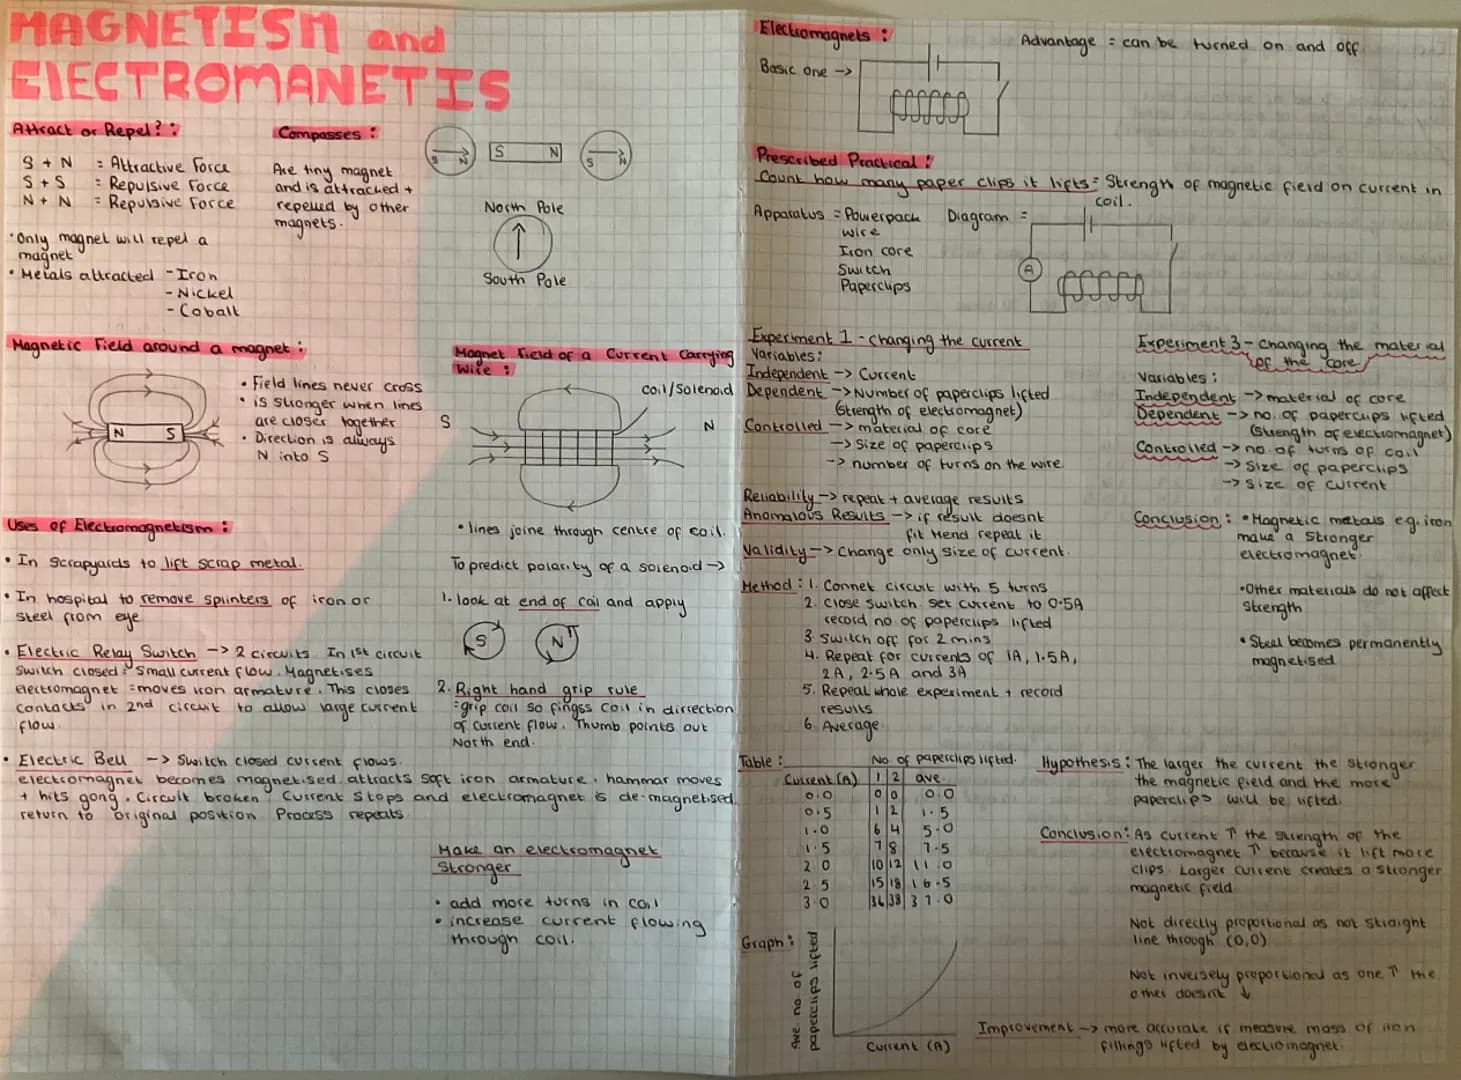 MAGNETISM and
ElECTROMANETIS
Attract or Repel? :
S + N = Attractive Force
S + S = Repulsive Force
N + N = Repulsive Force
• Only magnet will repel a
magnet
• Metals attracted - Iron
- Nickel
- Cobalt
Compasses :
Are tiny magnet
and is attracted +
repelled by other
magnets.
S N
S N
S N
North Pole
South Pole
Magnetic Field around a magnet :
N S
• Field lines never cross
• is stronger when lines
are closer together
• Direction is always
N into S
Magnet Field of a Current Carrying
Wire :
coil/Solenoid
S
N
• lines joine through centre of coil.
To predict polarity of a solenoid ->
1. look at end of coil and apply
S N
2. Right hand grip rule
=grip coil so fingss coil in dirrection
of current flow. Thumb points out
North end.
Uses of Electromagnetism :
• In Scrapyards to lift scrap metal.
• In hospital to remove splinters of iron or
steel from eye
• Electric Relay Switch -> 2 circuits. In 1st circuit
switch closed = Small current flow. Magnetises
electromagnet = moves iron armature. This closes
contacts in 2nd circuit to allow large current
flow.
• Electric Bell -> Switch closed current flows.
electromagnet becomes magnetised attracts soft iron armature. hammar moves
+ hits gong. Circuit broken. Current Stops and electromagnet is de-magnetised.
return to original position Process repeats
Make an electromagnet
Stronger
• add more turns in coil
• increase current flowing
through coil.
Electromagnets :
Basic one ->
Advantage = can be turned on and off
Prescribed Practical :
Count how many paper clips it lifts = Strength of magnetic field on current in
coil.
Apparatus = Powerpack
wire
Iron core
Switch
Paperclips
Diagram =
A
Experiment 1 - changing the current
Variables :
Independent -> Current
Dependent -> Number of paperclips lifted
(Strength of electromagnet)
Controlled -> material of core
-> Size of paperclips
-> number of turns on the wire.
Reliability -> repeat + average results
Anomalous Results -> if result doesnt
fit trend repeat it
Validity -> Change only size of current.
Method : 1. Connet circuit with 5 turns
2. Close switch. Set current to 0.5A
record no. of paperclips lifted
3. Switch off for 2 mins
4. Repeat for currents of 1A, 1.5A,
2A, 2.5A and 3A
5. Repeat whole experiment + record
results
6. Average
Experiment 3 - changing the material
of the core
Variables :
Independent -> material of core
Dependent -> no. of paperclips lifted
(Strength of electromagnet)
Controlled -> no. of turns of coil
-> Size of paperclips
-> Size of current
Conclusion : • Magnetic metals eg. iron
make a stronger
electromagnet.
• Other materials do not affect
strength
• Steel becomes permanently
magnetised
Table :
No. of paperclips lifted.
Current (A) 1 2 ave
0.0 0 0 0.0
0.5 1 2 1.5
1.0 6 4 5.0
1.5 7 8 7.5
2.0 10 12 11.0
2.5 15 18 16.5
3.0 36 38 37.0
Hypothesis : The larger the current the stronger
the magnetic field and the more
paperclips will be lifted.
Conclusion : As current ↑ the strength of the
electromagnet ↑ because it lift more
clips. Larger current creates a stronger
magnetic field
Not directly proportional as not straight
line through (0,0)
Not inversely proportional as one ↑ the
other doesnt ↓
Graph :
Ave no. of
paperclips lifted
Current (A)
Improvement -> more accurate if measure mass of iron
fillings lifted by electromagnet.